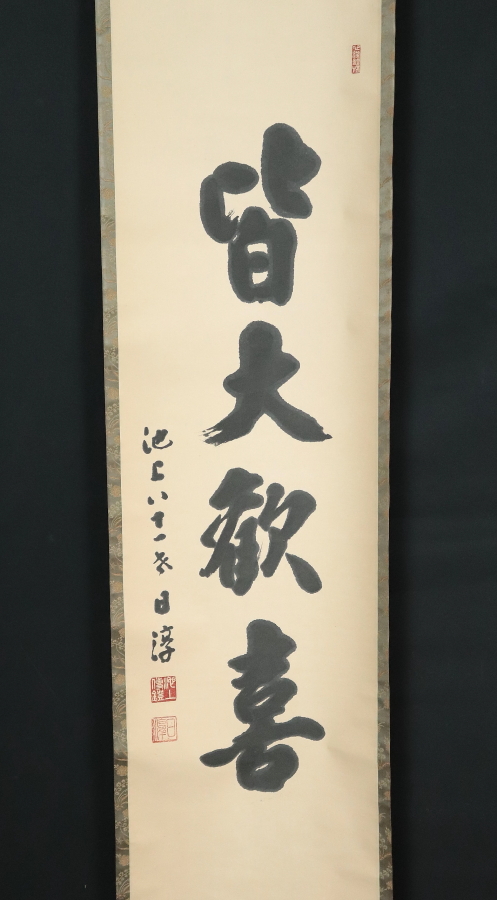 皆大歓喜
池上八十一老日淳